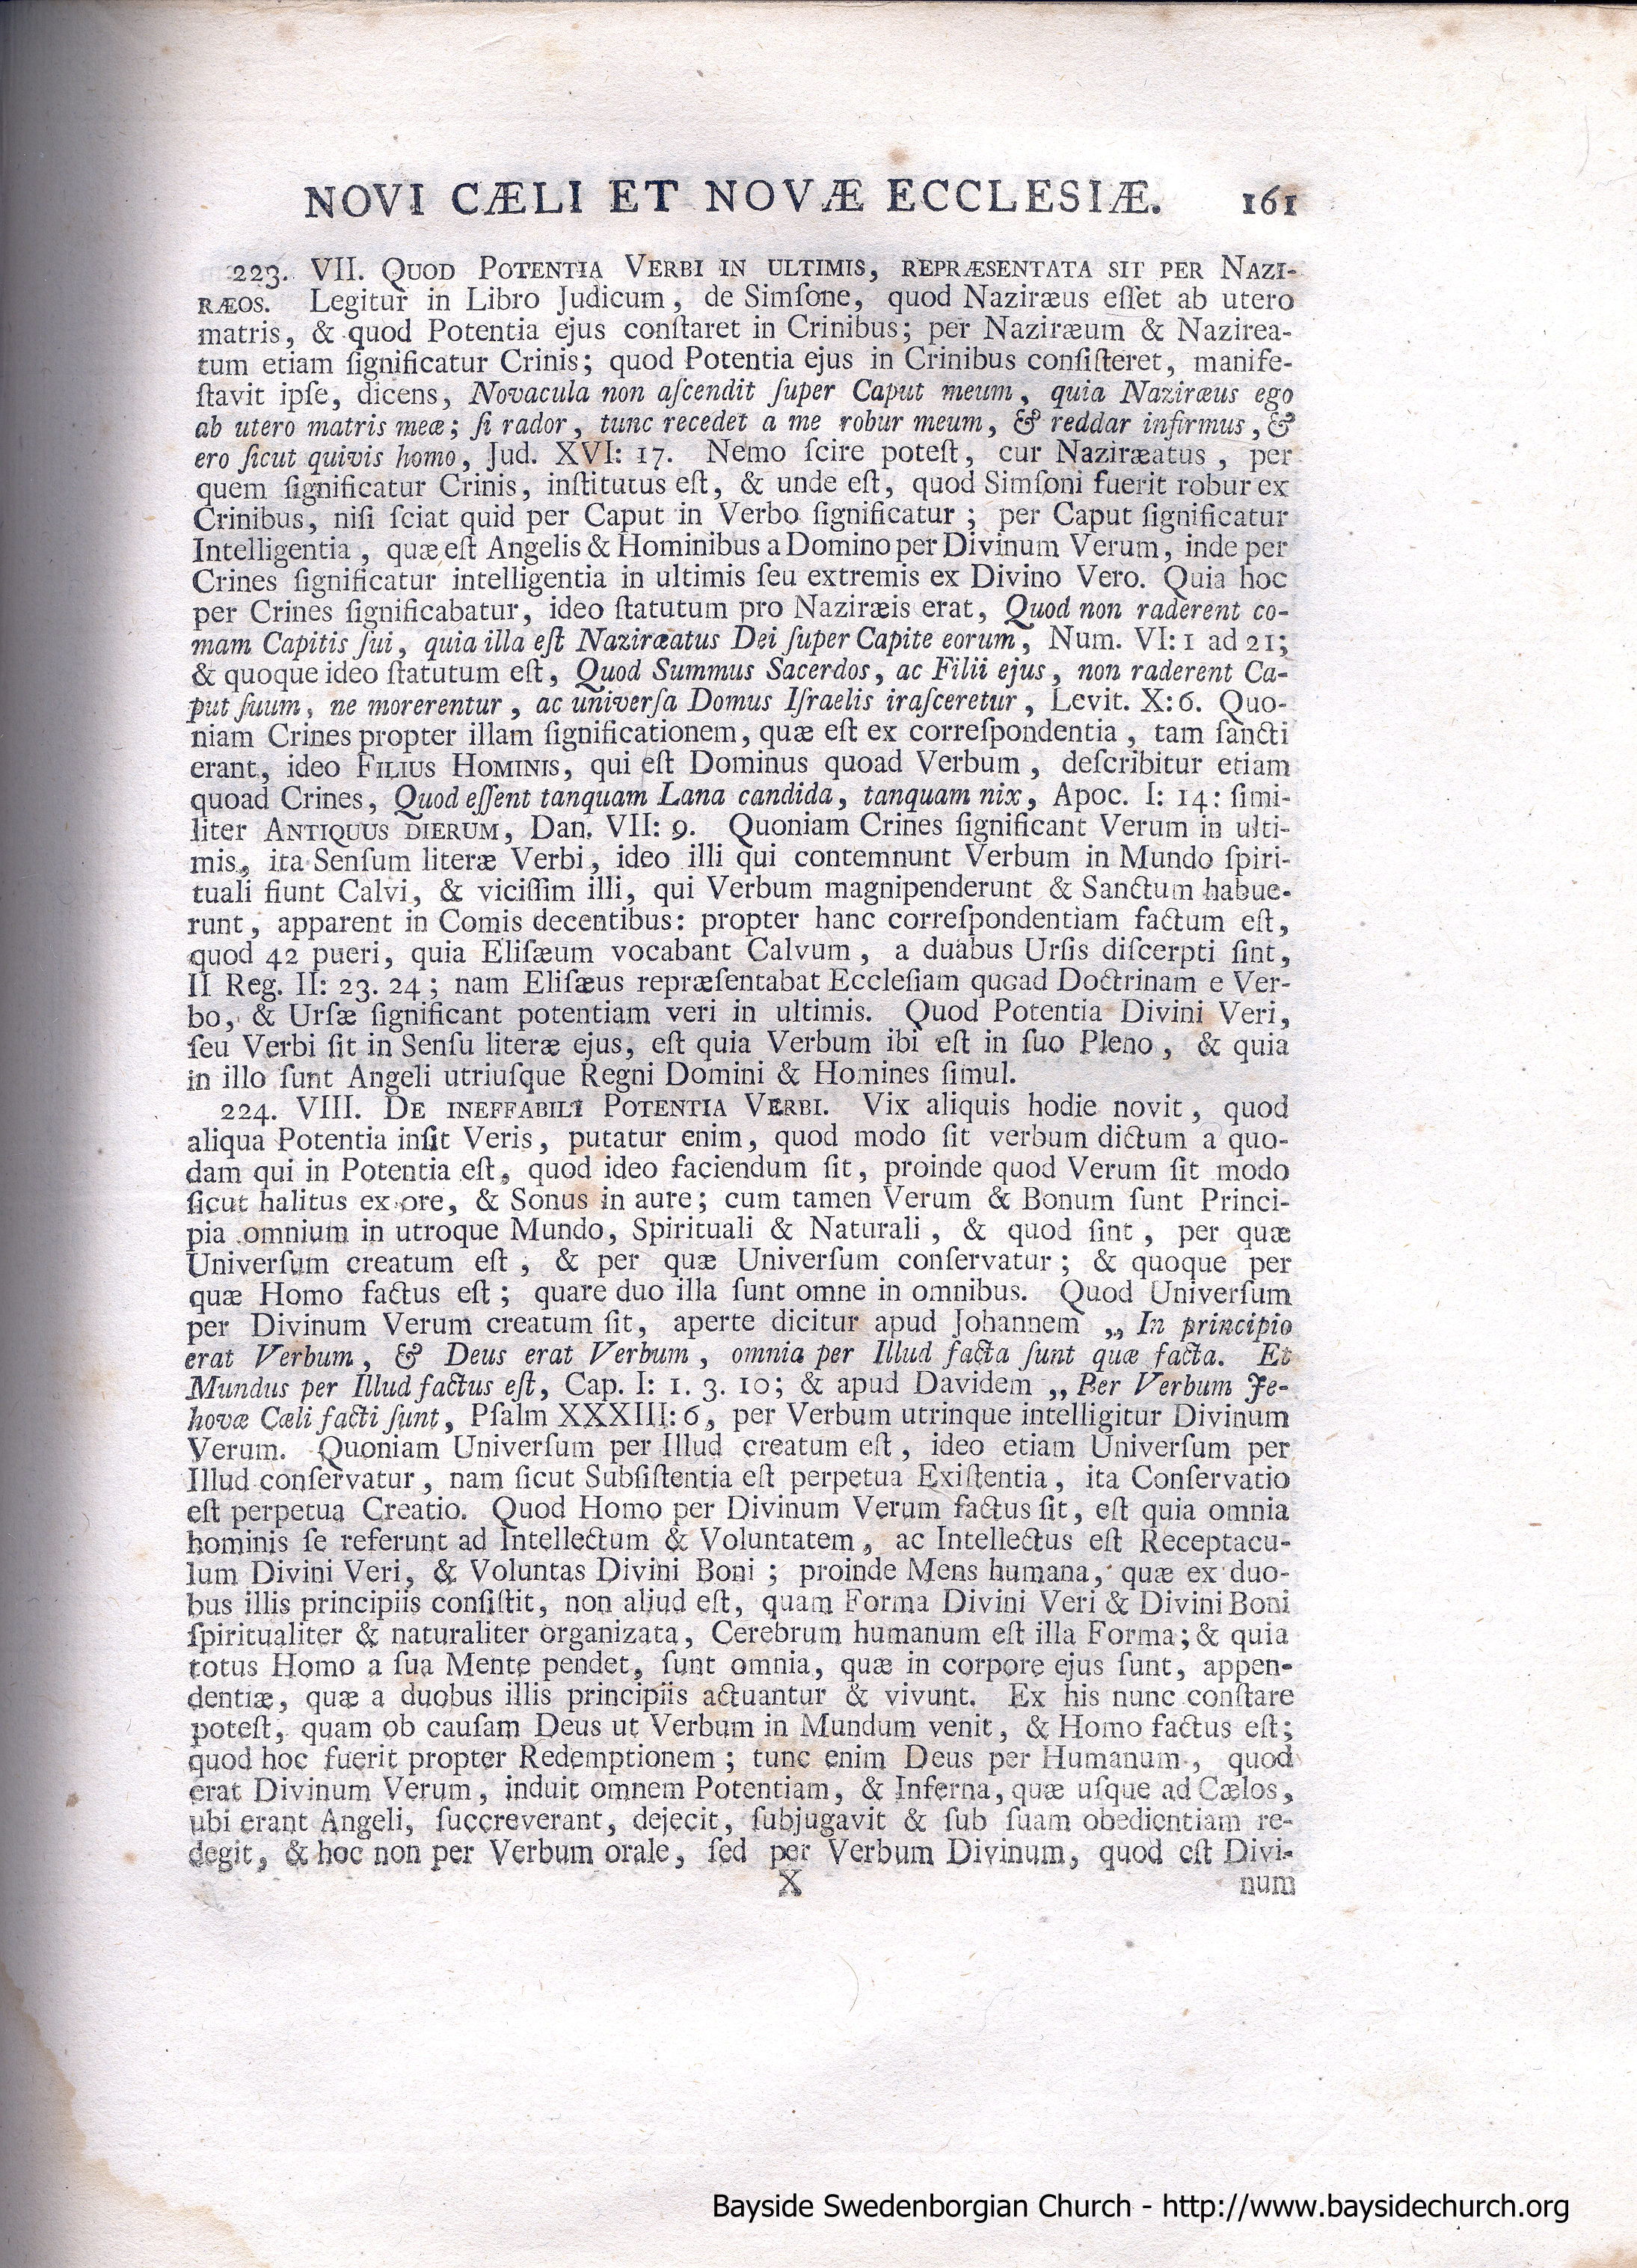 NOVI CÆLI ET NOVÆ ECCLESIÆ. 161
223. VII. QUOD POTENTIA VERBI IN ULTIMIS, REPRÆSENTATA SIT PER NAZI-
RÆOS. Legitur in Libro Judicum, de Simſone, quod Naziræus eſſet ab utero
matris, & quod Potentia ejus conſtaret in Crinibus; per Naziræum & Nazirea-
tum etiam ſignificatur Crinis; quod Potentia ejus in Crinibus conſiſteret, manife-
ſtavit ipſe, dicens, Novacula non aſcendit ſuper Caput meum, quia Naziræus ego
ab utero matris meæ; ſi rador, tunc recedet a me robur meum, & reddar infirmus, &
ero ſicut quivis homo, Jud. XVI: 17. Nemo ſcire poteſt, cur Naziræatus, per
quem ſignificatur Crinis, inſtitutus eſt, & unde eſt, quod Simſoni fuerit robur ex
Crinibus, niſi ſciat quid per Caput in Verbo ſignificatur; per Caput ſignificatur
Intelligentia, quæ eſt Angelis & Hominibus a Domino per Divinum Verum, inde per
Crines ſignificatur intelligentia in ultimis ſeu extremis ex Divino Vero. Quia hoc
per Crines ſignificabatur, ideo ſtatutum pro Naziræis erat, Quod non raderent co-
mam Capitis ſui, quia illa eſt Naziræatus Dei ſuper Capite eorum, Num. VI: 1 ad 21;
& quoque ideo ſtatutum eſt, Quod Summus Sacerdos, ac Filii ejus, non raderent Ca-
put ſuum, ne morerentur, ac univerſa Domus Iſraelis iraſceretur, Levit. X: 6. Quo-
niam Crines propter illam ſignificationem, quæ eſt ex correſpondentia, tam ſancti
erant, ideo FILIUS HOMINIS, qui eſt Dominus quoad Verbum, deſcribitur etiam
quoad Crines, Quod eſſent tanquam Lana candida, tanquam nix, Apoc. I: 14: ſimi-
liter ANTIQUUS DIERUM, Dan. VII: 9. Quoniam Crines ſignificant Verum in ulti-
mis, ita Senſum literæ Verbi, ideo illi qui contemnunt Verbum in Mundo ſpiri-
tuali fiunt Calvi, & viciſſim illi, qui Verbum magnipenderunt & Sanctum habue-
runt, apparent in Comis decentibus: propter hanc correſpondentiam factum eſt,
quod 42 pueri, quia Eliſæum vocabant Calvum, a duabus Urſis diſcerpti ſint,
II Reg. II: 23. 24; nam Eliſæus repræſentabat Eccleſiam quoad Doctrinam e Ver-
bo, & Urſæ ſignificant potentiam veri in ultimis. Quod Potentia Divini Veri,
ſeu Verbi ſit in Senſu literæ ejus, eſt quia Verbum ibi eſt in ſuo Pleno, & quia
in illo ſunt Angeli utriuſque Regni Domini & Homines ſimul.
224. VIII. DE INEFFABILI POTENTIA VERBI. Vix aliquis hodie novit, quod
aliqua Potentia inſit Veris, putatur enim, quod modo ſit verbum dictum a quo-
dam qui in Potentia eſt, quod ideo faciendum ſit, proinde quod Verum ſit modo
ſicut halitus ex ore, & Sonus in aure; cum tamen Verum & Bonum ſunt Princi-
pia omnium in utroque Mundo, Spirituali & Naturali, & quod ſint, per quæ
Univerſum creatum eſt, & per quæ Univerſum conſervatur; & quoque per
quæ Homo factus eſt; quare duo illa ſunt omne in omnibus. Quod Univerſum
per Divinum Verum creatum ſit, aperte dicitur apud Johannem „ In principio
erat Verbum, & Deus erat Verbum, omnia per Illud facta ſunt quæ facta. Et
Mundus per Illud factus eſt, Cap. I: 1. 3. 10; & apud Davidem „ Per Verbum Je-
hovæ Cæli facti ſunt, Pſalm XXXIII: 6, per Verbum utrinque intelligitur Divinum
Verum. Quoniam Univerſum per Illud creatum eſt, ideo etiam Univerſum per
Illud conſervatur, nam ſicut Subſiſtentia eſt perpetua Exiſtentia, ita Conſervatio
eſt perpetua Creatio. Quod Homo per Divinum Verum factus ſit, eſt quia omnia
hominis ſe referunt ad Intellectum & Voluntatem, ac Intellectus eſt Receptacu-
lum Divini Veri, & Voluntas Divini Boni; proinde Mens humana, quæ ex duo-
bus illis principiis conſiſtit, non aliud eſt, quam Forma Divini Veri & Divini Boni
ſpiritualiter & naturaliter organizata, Cerebrum humanum eſt illa Forma; & quia
totus Homo a ſua Mente pendet, ſunt omnia, quæ in corpore ejus ſunt, appen-
dentiæ, quæ a duobus illis principiis actuantur & vivunt. Ex his nunc conſtare
poteſt, quam ob cauſam Deus ut Verbum in Mundum venit, & Homo factus eſt;
quod hoc fuerit propter Redemptionem; tunc enim Deus per Humanum, quod
erat Divinum Verum, induit omnem Potentiam, & Inferna, quæ uſque ad Cælos,
ubi erant Angeli, ſuccreverant, dejecit, ſubjugavit & ſub ſuam obedientiam re-
degit, & hoc non per Verbum orale, ſed per Verbum Divinum, quod eſt Divi-
X num
Bayside Swedenborgian Church - http://www.baysidechurch.org